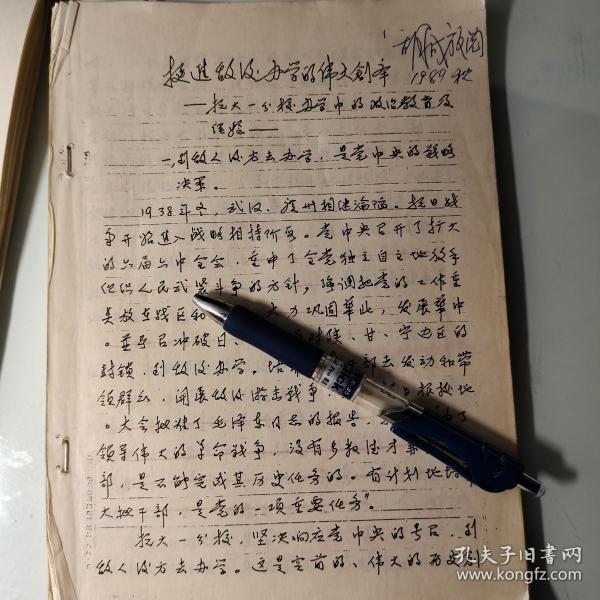 胡成放阅
1989 秋
挺进敌后办学的伟大创举
——抗大一分校办学中的政治教育及
经验——
一、到敌人后方去办学，是党中央的战略
决策。
1938年冬，武汉、广州相继沦陷。抗日战
争开始进入战略相持阶段。党中央召开了扩大
的六届六中全会，重申了全党独立自主地放手
组织人民武装斗争的方针，强调把党的工作重
点放在战区和 大力巩固华北，发展华中
。并号召冲破日、 陕、甘、宁边区的
封锁，到敌后办学。培 部去发动和带
领群众，开展敌后游击战争 根据地
。大会批准了毛泽东同志的报告，
领导伟大的革命战争，没有多数德才
部，是不能完成其历史任务的。有计划地培
大批干部，是党的一项重要任务"。
抗大一分校，坚决响应党中央的号召，到
敌人后方去办学。这是空前的、伟大的
孔夫子旧书网
www.kongfz.com